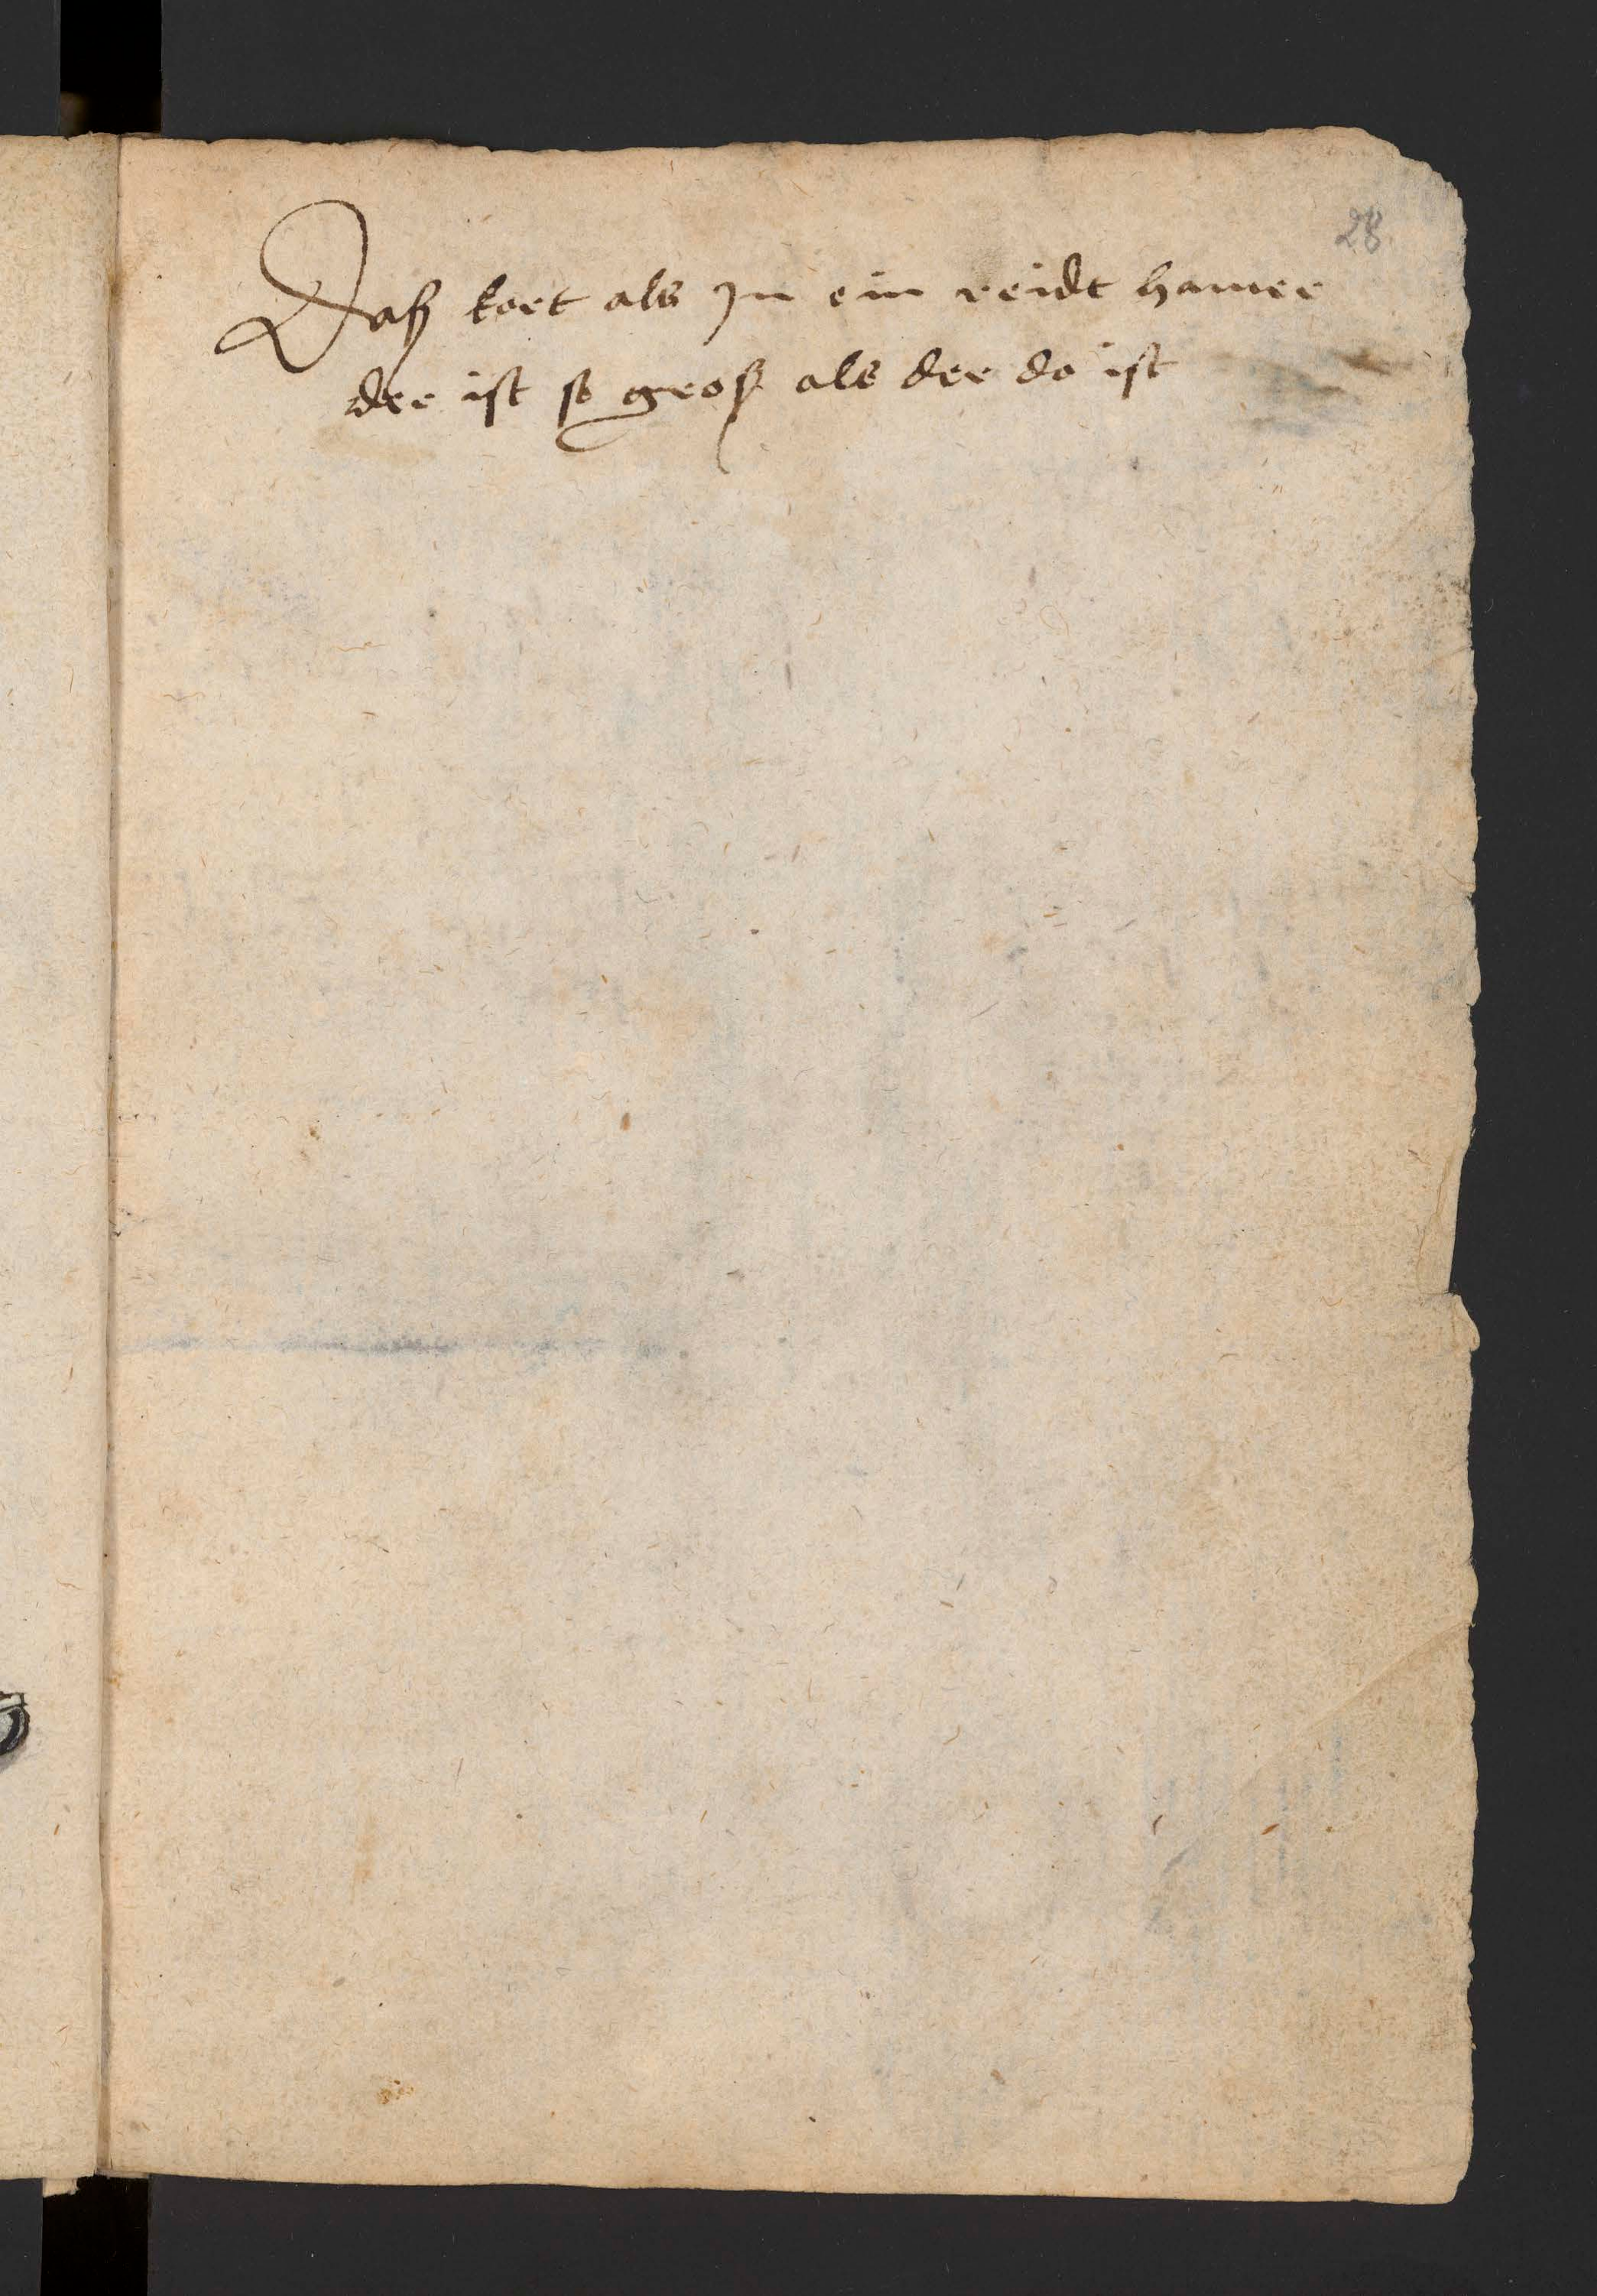 28
Daß kort als Jn ein reidt hamer
der ist so groß als der do ist